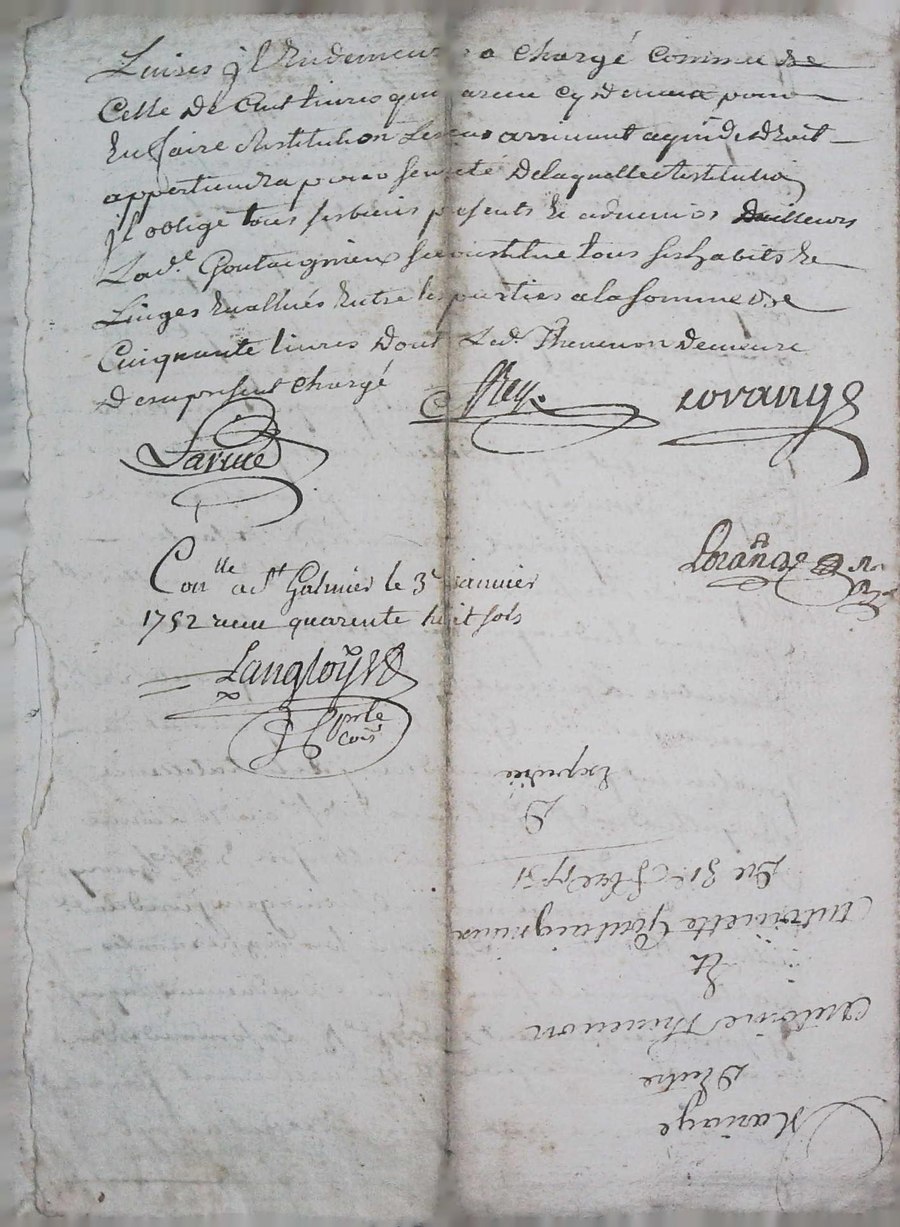 Livres q'l en demeurera chargé comme de
Celle de Cent livres qui a reçu cy devant pour
En faire Restitution Le cas arrivant a qui de droit
appartiendra pour sureté de laquelle Restitution
jl oblige tous ses biens presents et advenirs Dailleurs
Lad.e Goutaignieux se constitue tous ses habits et
Linges Evallués Entre les parties a la somme de
Cinquante livres Dont Led. Thevenon Demeure
Des a present chargé
Rey. corange
Larue
Con.lle a St Galmier le 3e janvier
1752 reçu quarente huit sols
Langloys
p.r le
Mariage
D'Entre
Antoine Thevenon
Et
Antoinette Goutaignieux
Du 31e Xbre 1751
Expediée